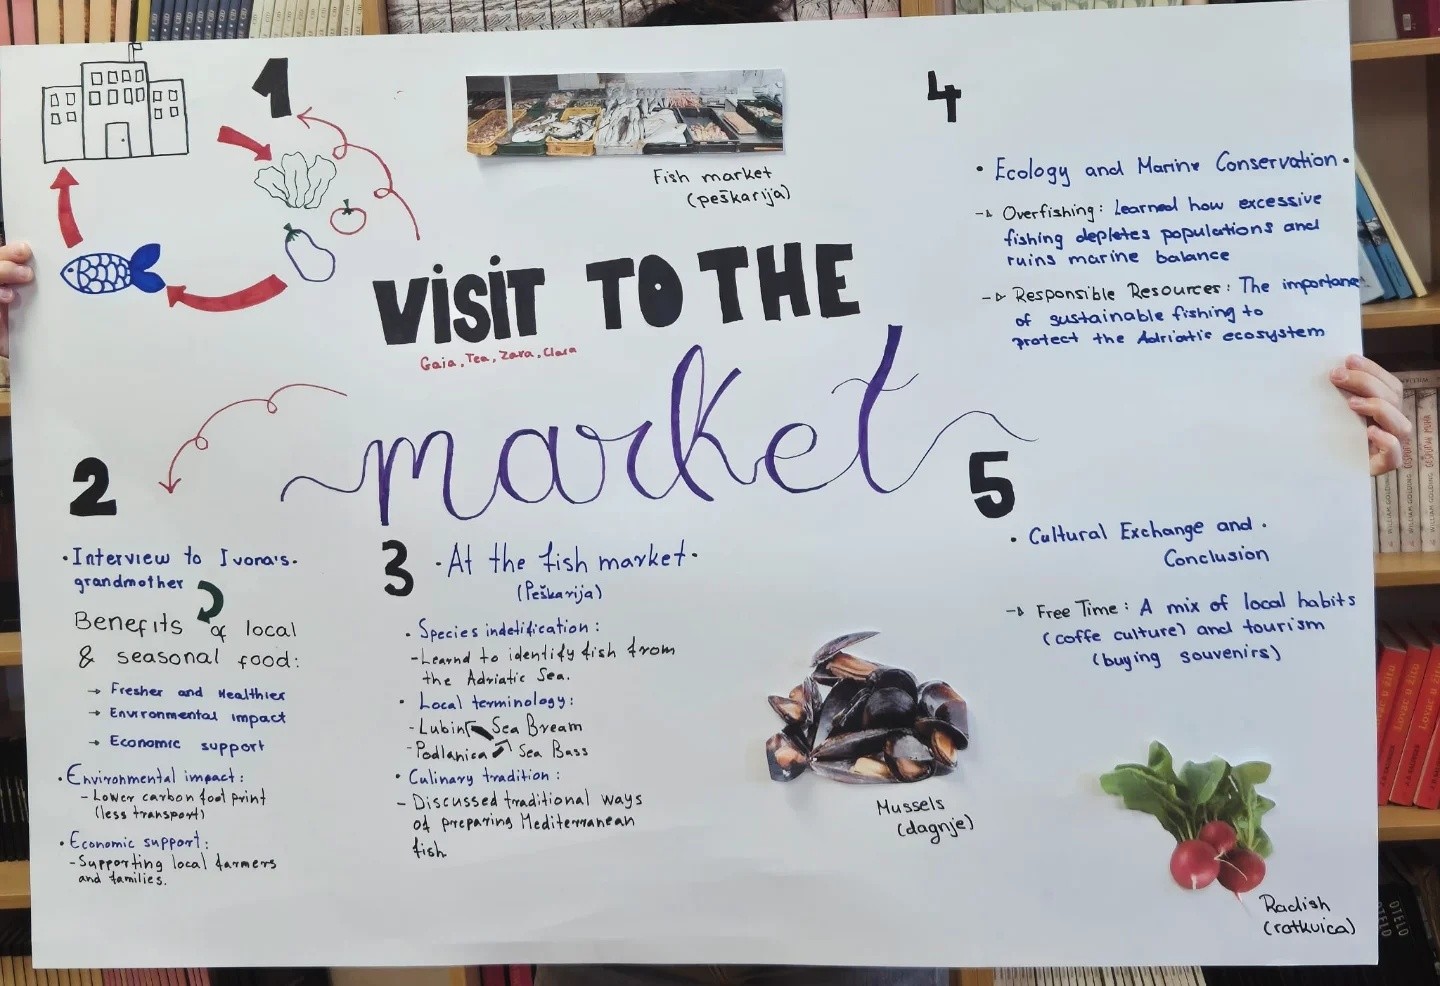 1
Fish market
(peškarija)
VISIT TO THE
Gaia, Tea, Zara, Clara
market
2
• Interview to Ivona's •
grandmother
Benefits of local
& seasonal food:
→ Fresher and Healthier
→ Environmental impact
→ Economic support
• Environmental impact:
- Lower carbon foot print
(less transport)
• Economic support:
- Supporting local farmers
and families.
3
• At the fish market •
(Peškarija)
• Species indetification:
- Learnd to identify fish from
the Adriatic Sea.
• Local terminology:
- Lubin Sea Bream
- Podlanica Sea Bass
• Culinary tradition:
- Discussed traditional ways
of preparing Mediterranean
fish.
4
• Ecology and Marine Conservation •
→ Overfishing: Learned how excessive
fishing depletes populations and
ruins marine balance
→ Responsible Resources: The importance
of sustainable fishing to
protect the Adriatic ecosystem
5
• Cultural Exchange and •
Conclusion
→ Free Time: A mix of local habits
(coffe culture) and tourism
(buying souvenirs)
Mussels
(dagnje)
Radish
(rotkvica)
WILLIAM GOLDING
GOSPODAR MUHA
Lovac u žitu
OTELO